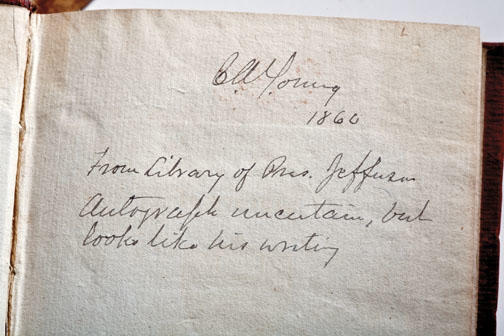 C.A. Young
1860
From Library of Pres. Jefferson
Autograph uncertain, but
looks like his writing